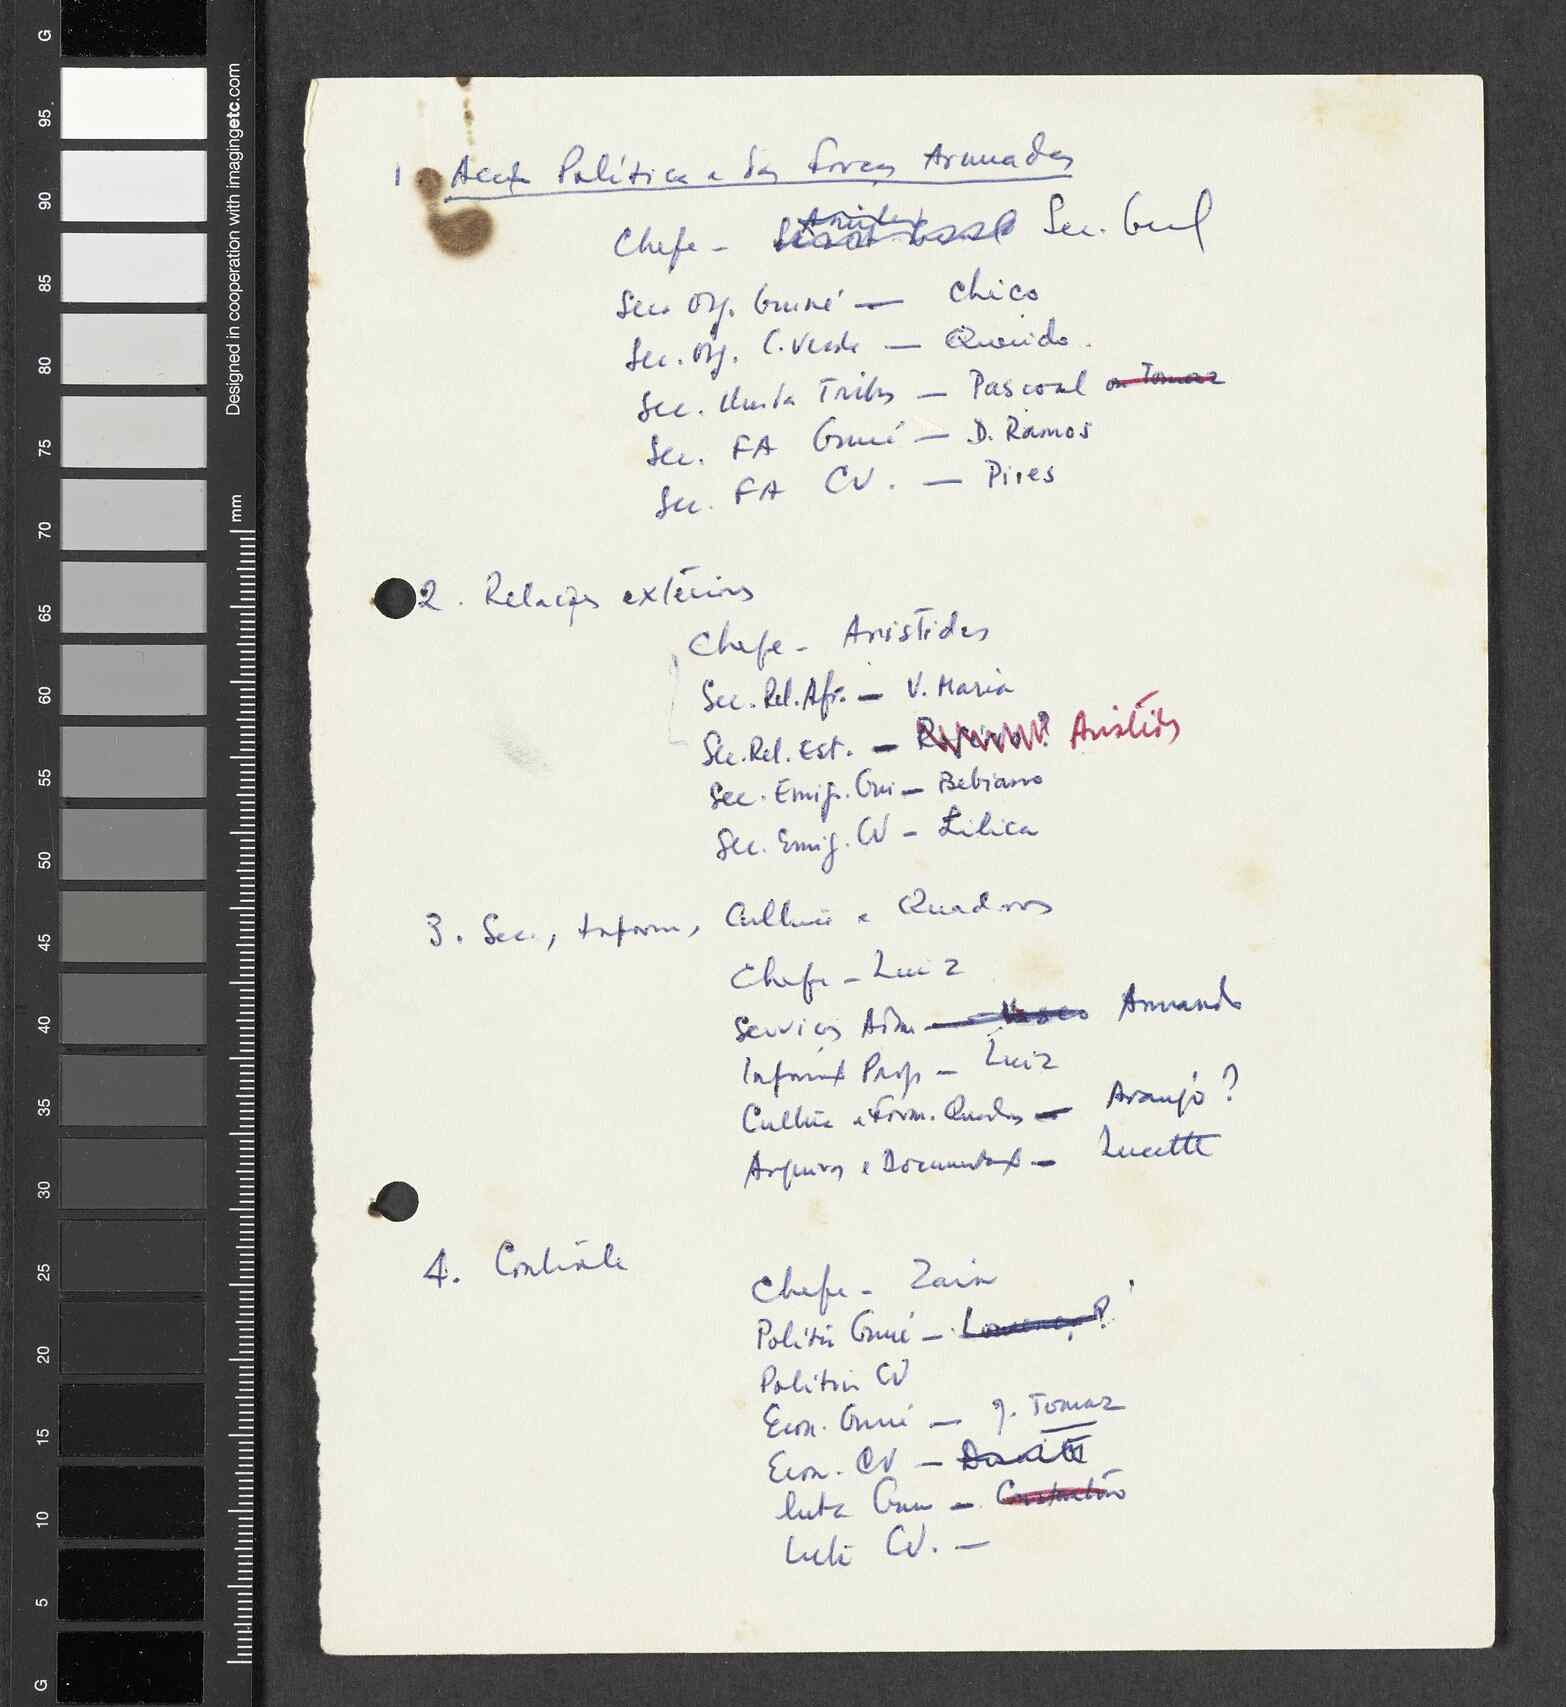 G
95
90
85
80
75
70
65
60
55
50
45
40
35
30
25
20
15
10
5
G
Designed in cooperation with imagingetc.com
mm
1 Política e das Forças Armadas
Chefe - Sec. Geral
Sec. Org. Guiné — Chico
Sec. Org. C. Verde — Querido.
Sec. Tribs — Pascoal ou Tomaz
Sec. FA Guiné — D. Ramos
Sec. FA CV. — Pires
2. Relações exteriores
Chefe - Aristides
Sec. Rel. Afr. — V. Maria
Sec. Rel. Est. — Aristides
Sec. Emig. Gui — Bebiano
Sec. Emig. CV — Lilica
3. Sec., Inform, Cultura e Quadros
Chefe - Luiz
Serviços Adm — Vasco Armando
Inform Prop — Luiz
Cultura e Form. Quadros — Araujo?
Arquivos e Document — Lucette
4. Contrôle
Chefe - Zain
Politica Guiné — Lourenço?
Politica CV
Econ. Guiné — J. Tomaz
Econ. CV —
luta Guin —
luta CV. —